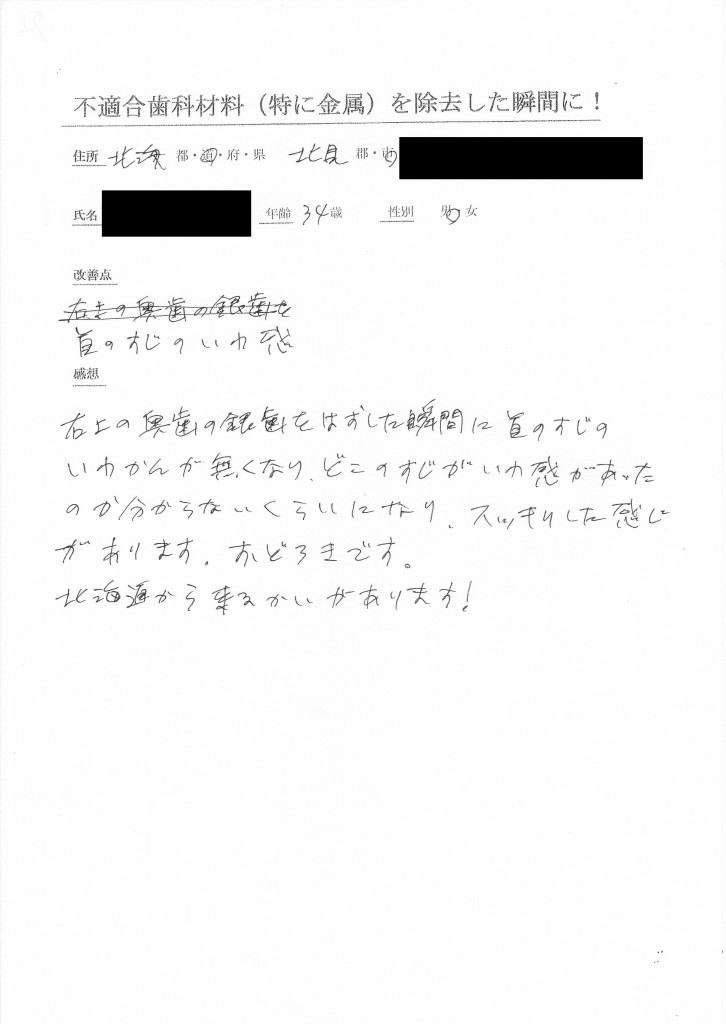 不適合歯科材料（特に金属）を除去した瞬間に！
住所 北海 都・道・府・県 北見 郡・市
氏名 年齢 34歳 性別 男・女
改善点
右上の奥歯の銀歯を
首のすじのいわ感
感想
右上の奥歯の銀歯をはずした瞬間に首のすじの
いわかんが無くなり、どこのすじがいわ感があった
のか分からないくらいになり、スッキリした感じ
があります。おどろきです。
北海道から来るかいがあります！